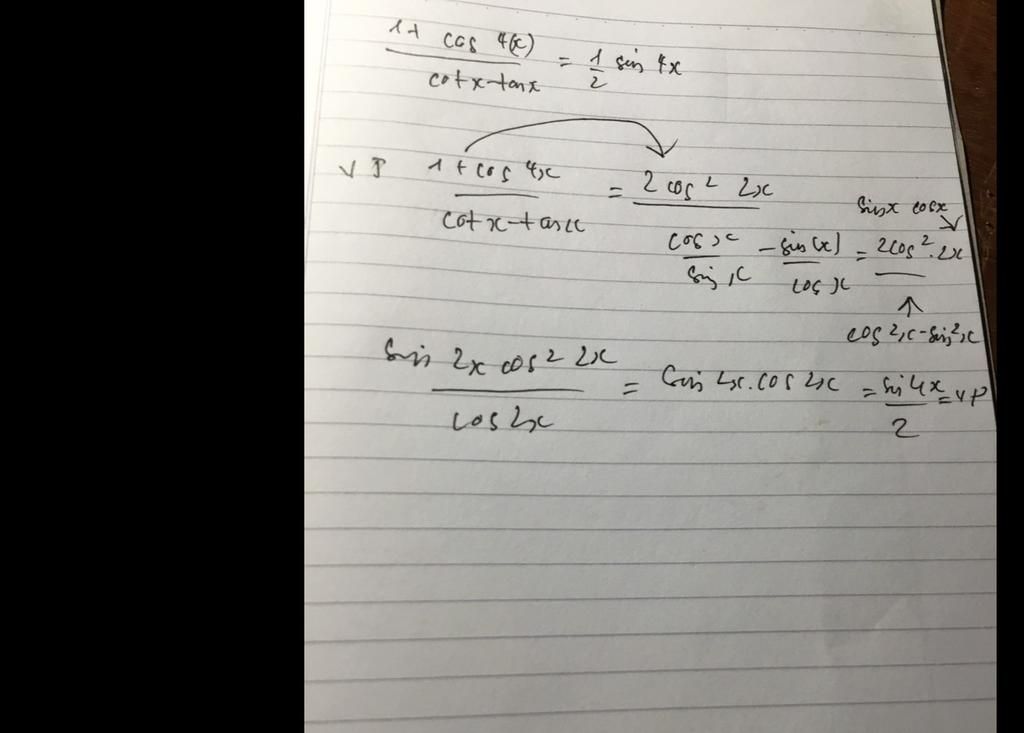 1 + cos 4(x) / cotx-tanx = 1/2 sin 4x
VT 1 + cos 4x / cot x - tan x = 2 cos² 2x /
sinx cosx
cos x / sin x - sin(x) / cos x = 2cos². 2x /
cos²x - sin²x
sin 2x cos² 2x / cos 2x = sin 2x. cos 2x = sin 4x / 2 = VP